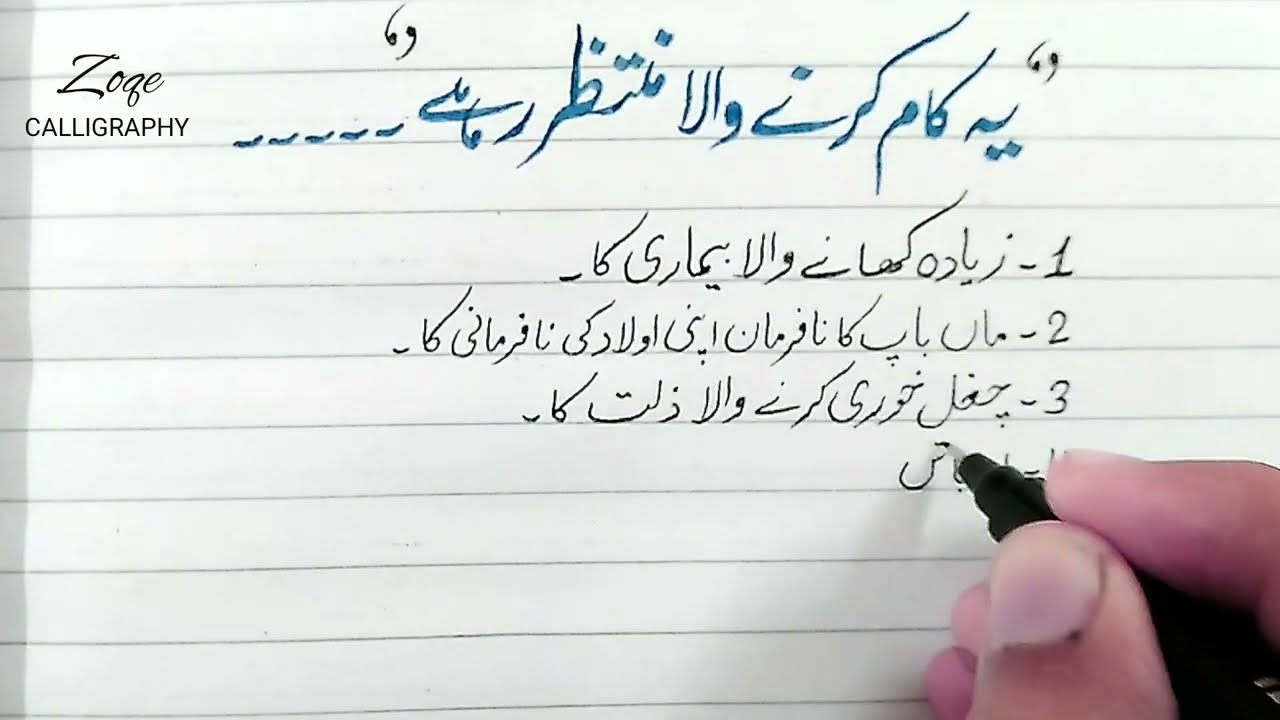 Zoqe
CALLIGRAPHY
"یہ کام کرنے والا منتظر رہے ۔۔۔۔۔"
1۔ زیادہ کھانے والا بیماری کا۔
2۔ ماں باپ کا نافرمان اپنی اولاد کی نافرمانی کا۔
3۔ چغل خوری کرنے والا ذلت کا۔